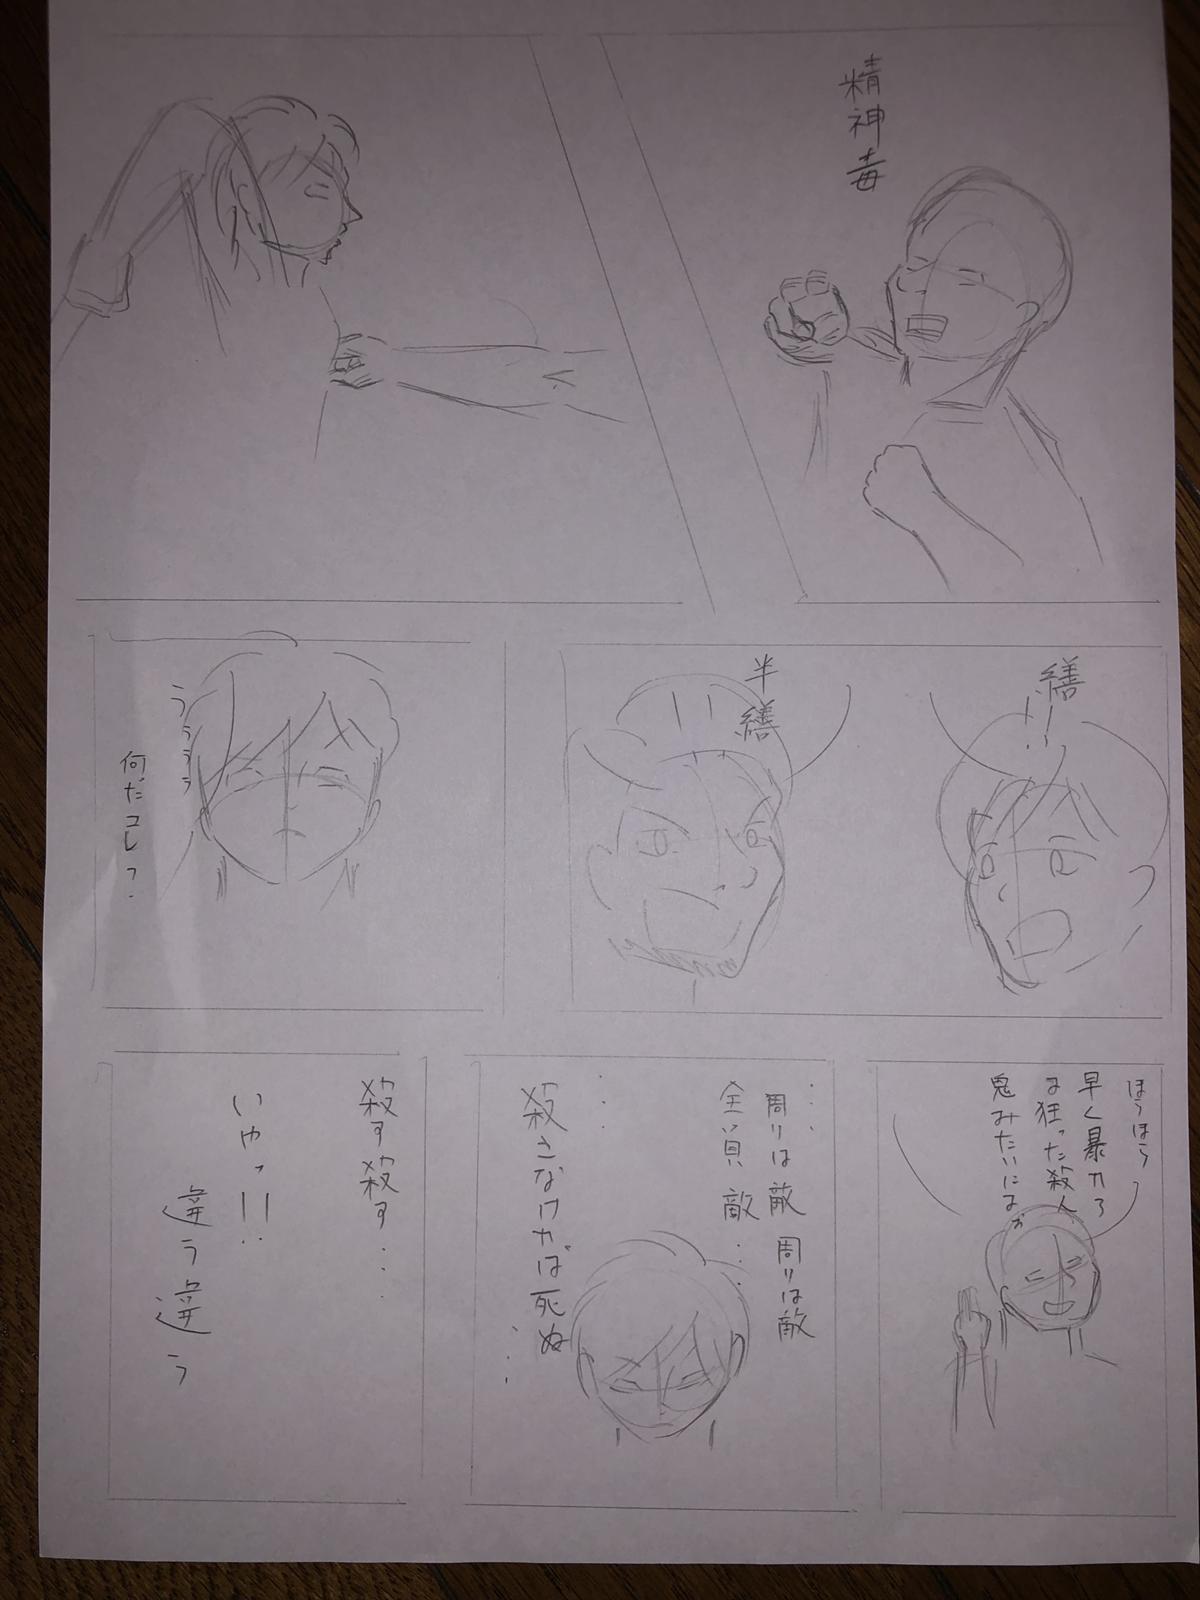 精神毒
繕!!
半繕
うぅぅぅ
何だコレ?
ほらほら
早く暴れろ
な狂った殺人
鬼みたいになぁ
…
周りは敵周りは敵
全員敵…
…
殺さなければ死ぬ
…
殺す殺す…
いやっ!!
違う違う